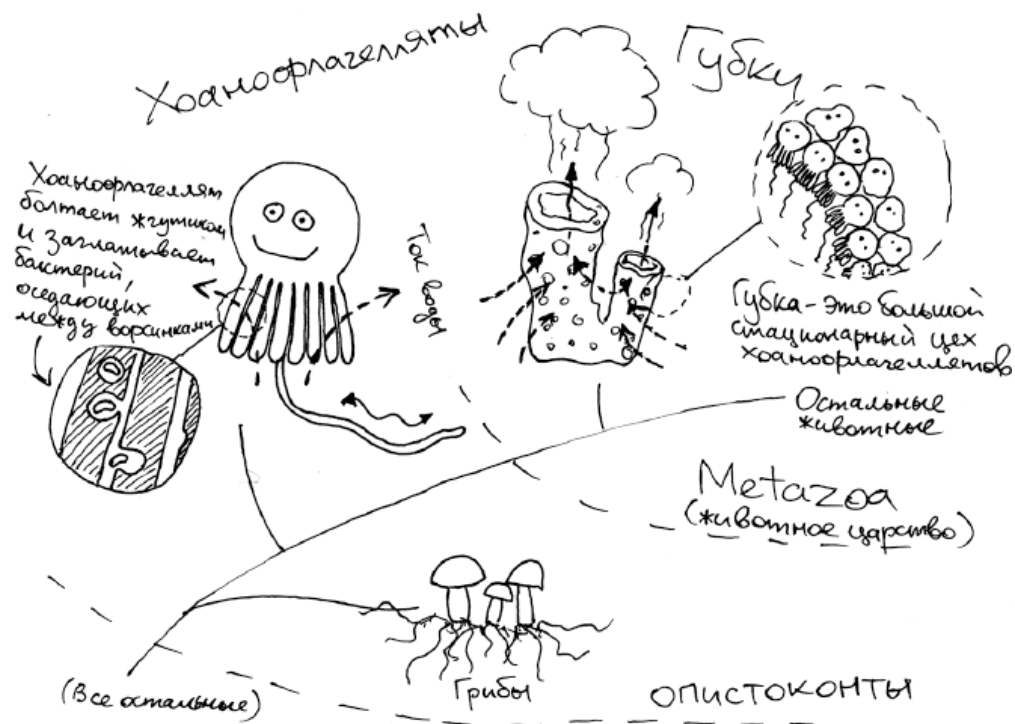 Хоанофлагелляты
Губки
Хоанофлагеллят
болтает жгутиком
и заглатывает
бактерий,
оседающих
между ворсинками
Ток воды
Губка - это большой
стационарный цех
хоанофлагеллятов
Остальные
животные
Metazoa
(животное царство)
Грибы
(Все остальные)
ОПИСТОКОНТЫ